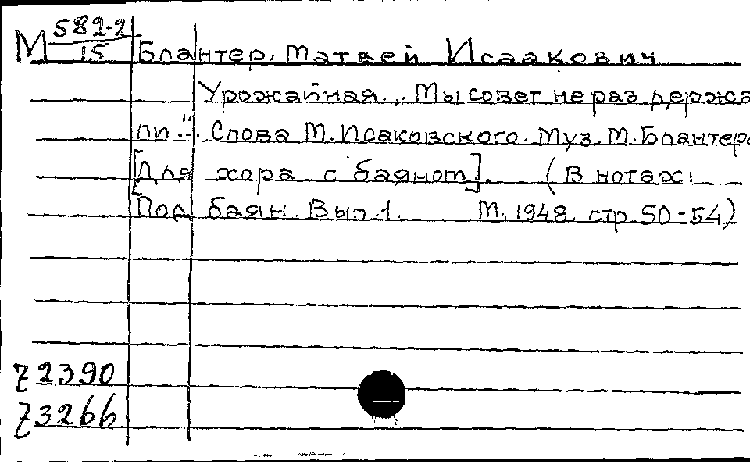 М 582-2
15
Блантер, Матвей Исаакович
Урожайная „Мы совет не раз держа
ли..." Слова М. Исаковского. Муз. М. Блантера
[Для хора с баяном]. (В нотах:
Под баян. Вып 1. М. 1948. стр. 50-54)
Z2390
Z3266